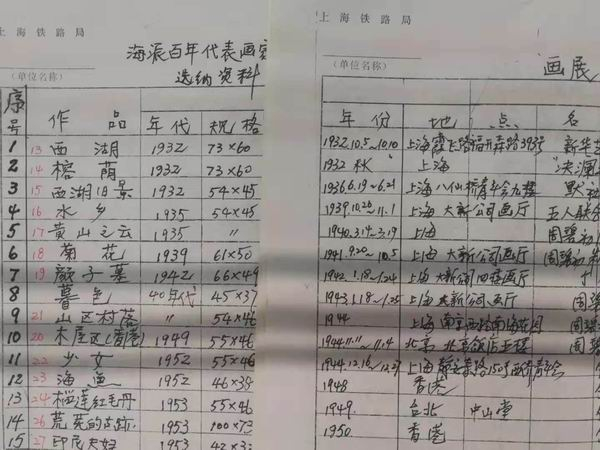 上海铁路局
海派百年代表画
选纳资料
（单位名称）
序号 作品 年代 规格
1 13 西湖 1932 73×60
2 14 榕荫 1932 73×60
3 15 西湖旧景 1932 54×45
4 16 水乡 1935 54×45
5 17 黄山之云 1935 〃
6 18 菊花 1939 61×50
7 19 颜子墓 1942 66×49
8 暮色 40年代 45×37
9 21 山区村落 〃 54×46
10 20 木屋区(香港) 1949 55×46
11 22 少女 1952 55×46
12 23 海鱼 1952 46×38
13 24 榴莲红毛丹 1953 55×46
14 26 荒芜的古迹 1953 100×73
15 27 印尼夫妇 1953 42×3
上海铁路局
画展
（单位名称）
年份 地点 名
1932.10.5~10.10 上海霞飞路福开森路393号 新华艺
1932 秋 上海 "决澜
1936.6.19~6.21 上海八仙桥青年会九楼 默社
1939.10.26~11.1 上海大新公司画厅 五人联
1940.3.19~3.19 上海 周碧初
1941.9.20~10.5 上海大新公司画厅 周碧初
1942.1.18~1.24 上海大新公司四楼画厅
1943.1.18~1.25 上海大新公司画厅 周碧
1944 上海南京西路南海花园 周碧
1944.11.~11.4 北京北京饭店五楼 周碧
1944.12.16~12.27 上海静安寺路150号西青年会
1948 香港
1949. 台北 中山堂
1950 香港